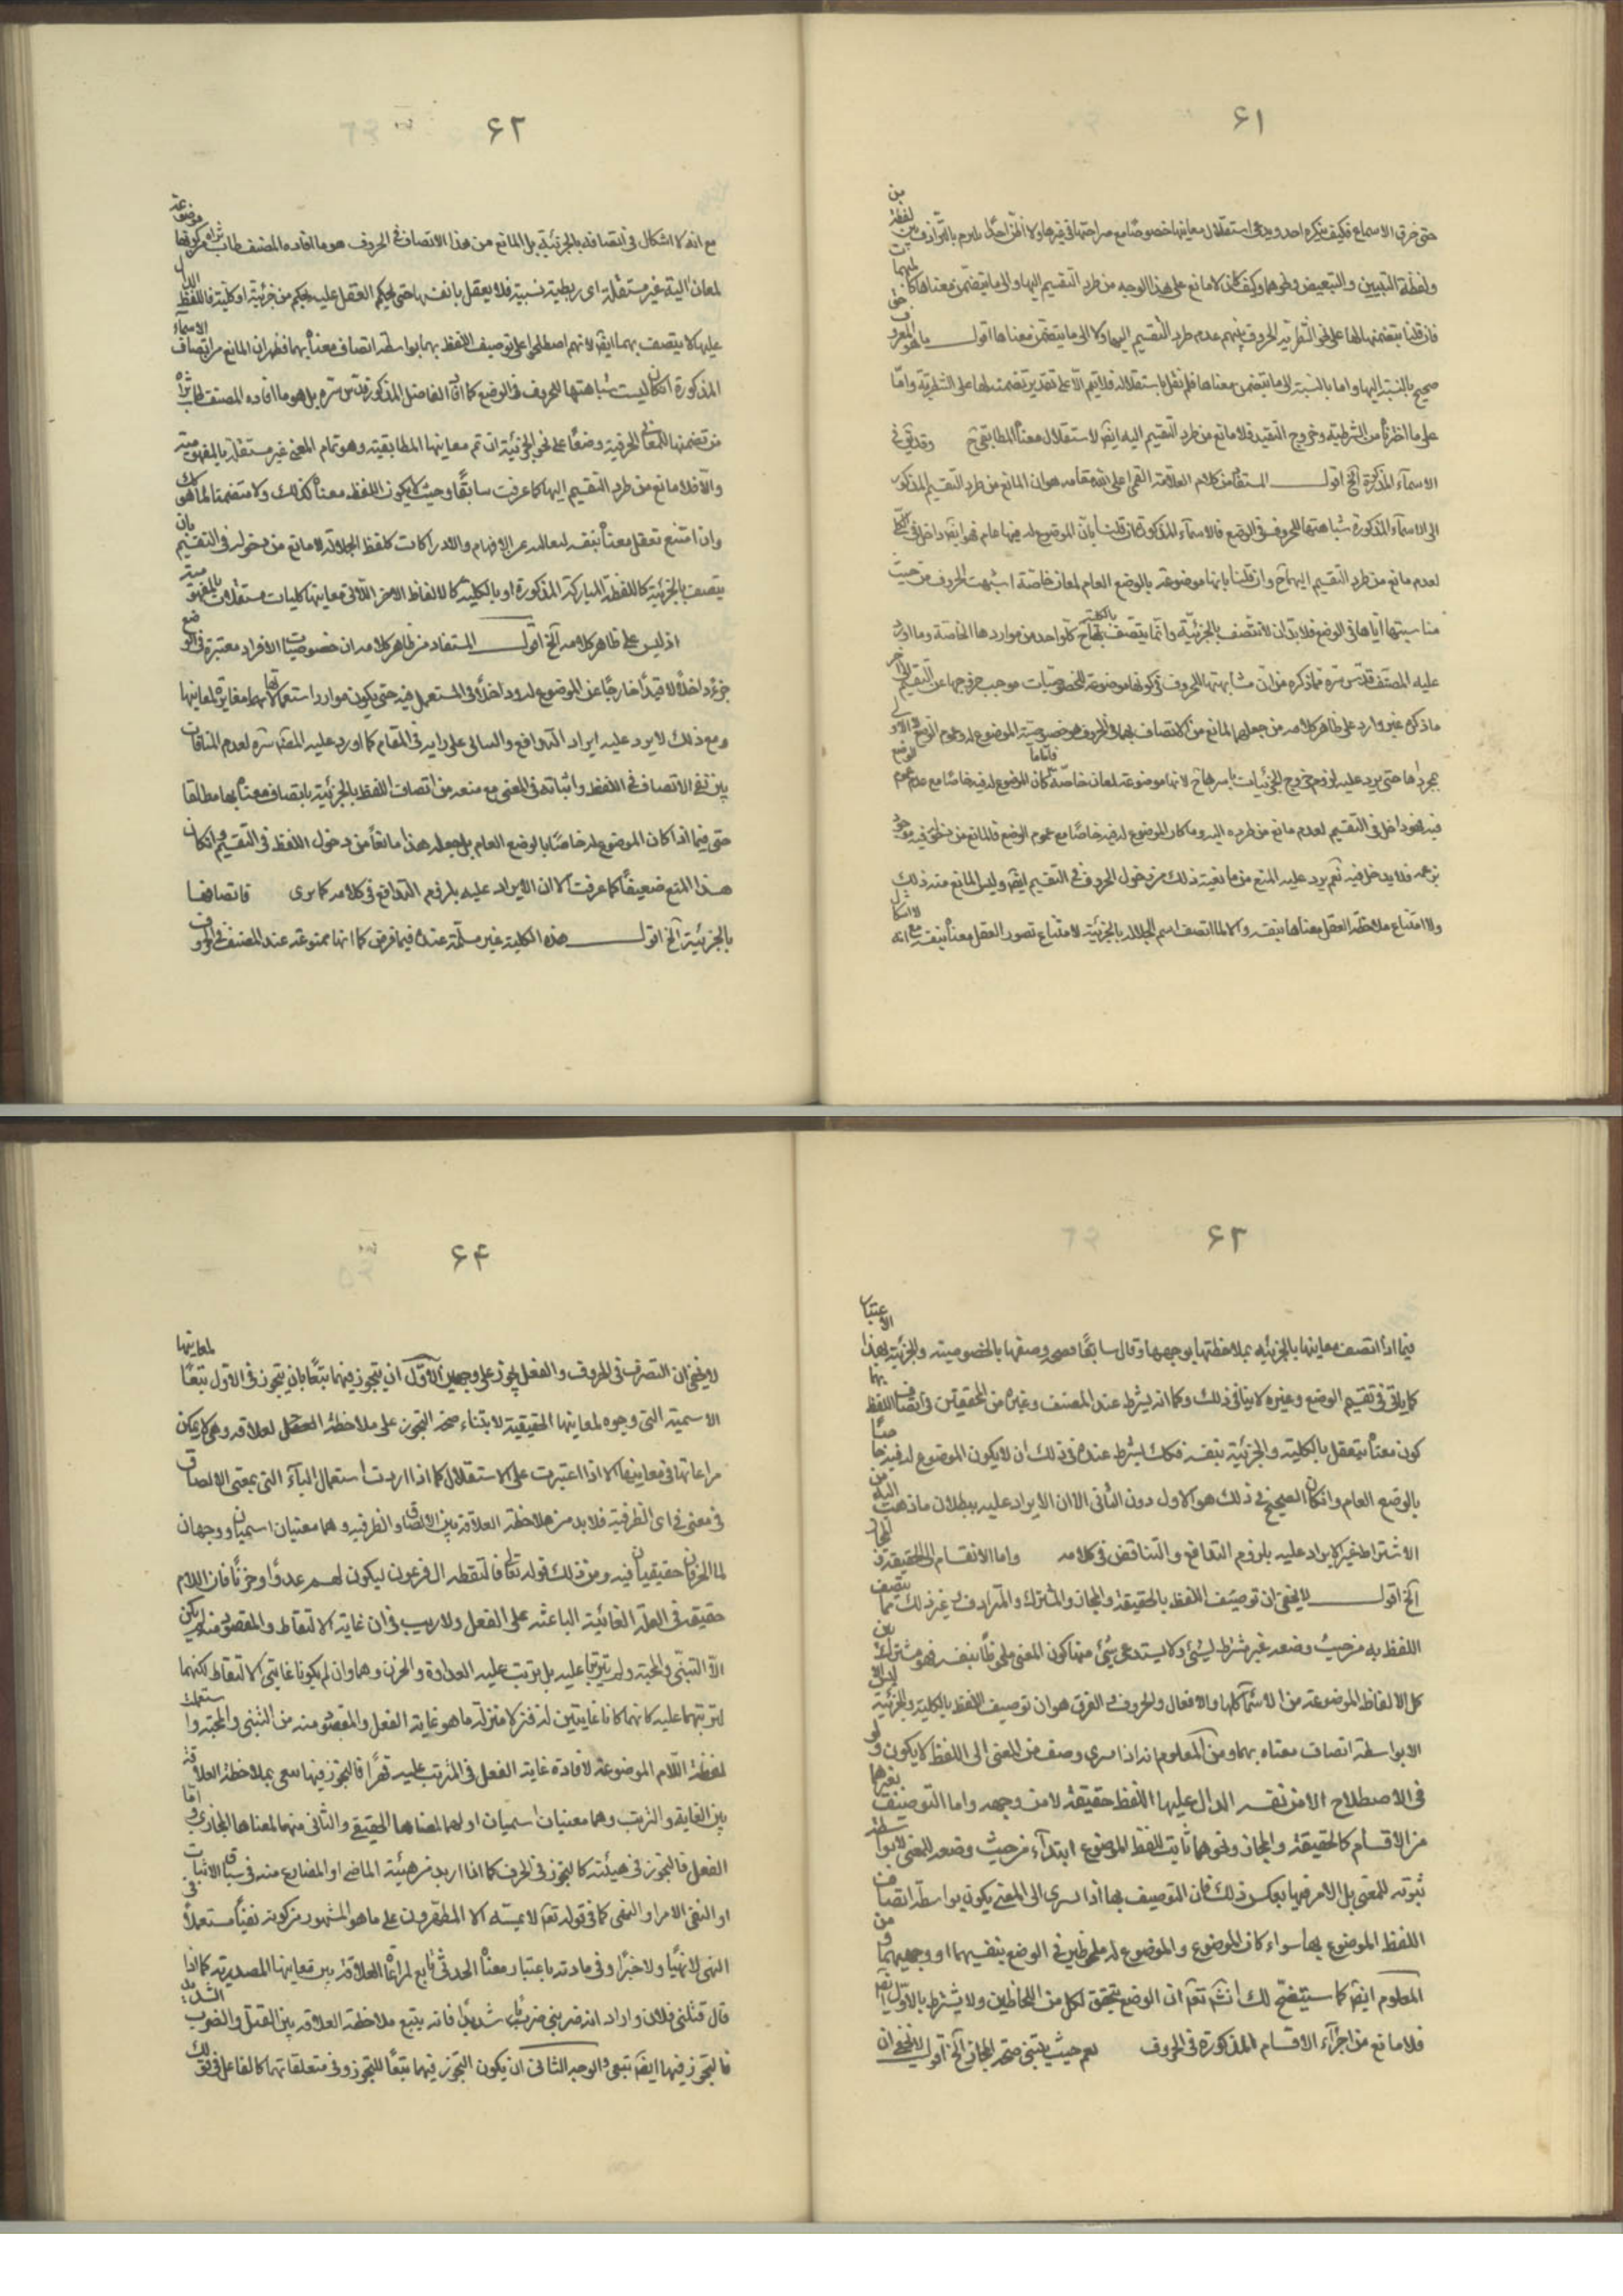 ۶۱
حتى خرق الاسماع فكيف ينكره احد ويدعى استقلال معانيها خصوصًا مع صراحتها في غيرها ولا اظن احدًا يلتزم بالترادف بين لفظة من
ولفظة التبيين والتبعيض ونحوهما وكيف كان لا مانع على هذا الوجه من طرد التقسيم اليها والى ما يتضمن معناها كما
فان قلنا بتضمنها لها على نحو الشطرية الحروف منهم عدم طرد التقسيم اليها ولا الى ما يتضمن معناها اقول ما هو المعروف
صحيح بالنسبة اليها واما بالنسبة الى ما يتضمن معناها فلم نقل باستقلاله فلا يتم الا على تقدير تضمنه لها على الشطرية واما
على ما اخترناه من الشرطية وخروج التقيد فلا مانع من طرد التقسيم اليه ايضا لاستقلال معناه المطابقى ح وقد بقى في
الاسماء المذكورة الخ اقول المستفاد من كلام العلامة القمى اعلى الله مقامه هو ان المانع من طرد التقسيم المذكور
الى الاسماء المذكورة شباهتها للحروف في الوضع فالاسماء المذكورة ان قلنا بان الموضوع له فيها عام فهو ايضا داخل في الكلى
لعدم مانع من طرد التقسيم اليها ح وان قلنا بانها موضوعة بالوضع العام لمعان خاصة اشبهت الحروف من حيث
مناسبتها اياها في الوضع فلا بد ان لا تتصف بالجزئية وانما يتصف بها ح كل واحد من مواردها الخاصة وما اورد
عليه المصنف قدس سره فيما ذكره من ان مشابهتها للحروف في كونها موضوعة للخصوصيات موجب خروجها عن التقسيم الاخر
ما ذكره غير وارد على ظاهر كلامه من جعل المانع من الاتصاف بها في الحروف هو خصوصية الموضوع له وعموم الوضع لا الاول
بمجردها حتى يرد عليه لزوم خروج الجزئيات باسرها ح لانها موضوعة لمعان خاصة فاما ما كان الموضوع له فيه خاصا مع عدم عموم الوضع
فيه فهو داخل في التقسيم لعدم مانع من طرده اليه وما كان الموضوع له فيه خاصا مع عموم الوضع فالمانع من دخوله فيه موجود
بزعمه فلا يدخل فيه نعم يرد عليه المنع من مانعية ذلك من دخول الحروف في التقسيم ايضا وليس المانع منه ذلك
ولا امتناع ملاحظة العقل معناها بنفسه والا لما اتصف اسم الجلالة بالجزئية لامتناع تصور العقل معناه بنفسه مع انه لا اشكال
۶۲
مع انه لا اشكال في اتصافه بالجزئية بل المانع من هذا الاتصاف في الحروف هو ما افاده المصنف طاب ثراه من كونها موضوعة
لمعان الية غير مستقلة اى ربطية نسبية فلا يعقل بانفسها حتى يحكم العقل عليه بحكم من جزئية او كلية فاللفظ الدال
عليها لا يتصف بهما ايضا لانهم اصطلحوا على توصيف اللفظ بهما بواسطة اتصاف معناه بهما فظهر ان المانع من اتصاف الاسماء
المذكورة ان كان ليست شباهتها للحروف في الوضع كما افاد الفاضل المذكور قدس سره بل هو ما افاده المصنف طاب ثراه
من تضمنها للمعانى الحرفية وضعًا على نحو الجزئية ان تم معانيها المطابقية وهو تمام المعنى غير مستقلة بالمفهومية
والا فلا مانع من طرد التقسيم اليها كما عرفت سابقًا وحيث لا يكون اللفظ معناه كذلك ولا متضمنا لما هو كذلك
وان امتنع تعقل معناه بنفسه لتعاليه عن الافهام والادراكات كلفظ الجلالة لا مانع من دخوله في التقسيم بان
يتصف بالجزئية كاللفظة المباركة المذكورة او بالكلية كالالفاظ الاخر اللاتى معانيها كليات مستقلات بالمفهومية
اذ ليس على ظاهر كلامه الخ اقول المستفاد من ظاهر كلامه ان خصوصيات الافراد معتبرة في الوضع
جزءً داخلًا لا قيدًا خارجًا عن الموضوع له وداخلًا في المستعمل فيه حتى يكون موارد استعمالاتها مغايرة لمعانيها
ومع ذلك لا يرد عليه ايراد التدافع والتنافى على رايه في المقام كما اورد عليه المصنف سره لعدم المنافات
بين نفى الاتصاف في اللفظ واثباته في المعنى مع منعه من اتصاف اللفظ بالجزئية باتصاف معناه بها مطلقا
حتى فيما اذا كان الموضوع له خاصًا بالوضع العام بل جعله هذا مانعًا من دخول اللفظ في التقسيم وان كان
هذا المنع ضعيفًا كما عرفت الا ان الايراد عليه بلزوم التدافع في كلامه كما ترى فاتصافها
بالجزئية الخ اقول هذه الكلية غير مسلمة عنده فيما فرض كما انها ممنوعة عند المصنف في الحروف
۶۳
فيما اذا اتصف معانيها بالجزئية بملاحظتها بوجهها وقال سابقًا فصح وصفها بالخصوصية والجزئية بهذا الاعتبار
كما ياتى في تقسيم الوضع وغيره لا ينافى ذلك وكما انه يشترط عند المصنف وغيره من المحققين في اتصاف اللفظ بها
كون معناه متعقل بالكلية والجزئية بنفسه فكك يشترط عنده في ذلك ان لا يكون الموضوع له فيه خاصًا
بالوضع العام وان كان الصحيح في ذلك هو الاول دون الثانى الا ان الايراد عليه ببطلان ما ذهب اليه من
الاشتراط غير الايراد عليه بلزوم التدافع والتناقض في كلامه واما الانقسام الى الحقيقة والمجاز
الخ اقول لا يخفى ان توصيف اللفظ بالحقيقة والمجاز والمشترك والمترادف وغير ذلك مما يتصف
اللفظ به من حيث وضعه غير مشترط لشئ ولا يستدعى شئ منها كون المعنى ملحوظًا بنفسه فهو مشترك بين
كل الالفاظ الموضوعة من الاسماء كلها والافعال والحروف والفرق هو ان توصيف اللفظ بالكلية والجزئية ليس الا
الا بواسطة اتصاف معناه بهما ومن المعلوم انه اذا سرى وصف من المعنى الى اللفظ لا يكون ولو
في الاصطلاح الا من نفسه الدال عليها اللفظ حقيقة لا من وجهه واما التوصيف بغيرها
من الاقسام كالحقيقة والمجاز ونحوهما ثابت للفظ الموضوع ابتداء من حيث وضعه للمعنى لا بواسطة
ثبوته للمعنى بل الامر فيها بعكس ذلك فان التوصيف بها اذا سرى الى المعنى يكون بواسطة اتصاف
اللفظ الموضوع بها سواء كان الموضوع والموضوع له ملحوظين في الوضع بنفسهما او وجههما ومن
المعلوم ايضا كما سيتضح لك انشاء الله تعالى ان الوضع يتحقق لكل من اللحاظين ولا يشترط بالاول ايضا
فلا مانع من اجراء الاقسام المذكورة في الحروف نعم حيث يبتنى صحة المجاز الخ اقول لا يخفى ان
۶۴
لا يخفى ان التصرف في الحروف والفعل يجوز على وجهين الاول ان يتجوز فيهما تبعًا بان يتجوز في الاول تبعًا لمعانيها
الاسمية التى وجوه لمعانيها الحقيقية لابتناء صحة التجوز على ملاحظة العقل لعلاقة وهى لا يمكن
مراعاتها في معانيها الا اذا اعتبرت على الاستقلال كما اذا اردت استعمال الباء التى بمعنى الالصاق
في معنى في اى الظرفية فلا بد من ملاحظة العلاقة بين الالصاق والظرفية وهما معنيان اسميان ووجهان
لما الحرفان حقيقيان فيه ومن ذلك قوله تعالى فالتقطه ال فرعون ليكون لهم عدوًا وحزنًا فان اللام
حقيقة في العلة الغائية الباعثة على الفعل ولا ريب في ان غاية الالتقاط والمقصود منه لم يكن
الا التبنى والمحبة ولم يترتبا عليه بل ترتب عليه العداوة والحزن وهما وان لم يكونا غايتى الالتقاط لكنهما
لترتبهما عليه كانهما كانا غايتين له فنزلا منزلة ما هو غاية الفعل والمقصود منه من التبنى والمحبة واستعملت
لفظة اللام الموضوعة لافادة غاية الفعل في المترتب عليه قهرًا فالتجوز فيها تبعى بملاحظة العلاقة
بين الغاية والترتب وهما معنيان اسميان اولهما لمعناها الحقيقى والثانى منهما لمعناها المجازى واما
الفعل فالتجوز في هيئته كالتجوز في الحرف كما اذا اريد من هيئة الماضى او المضارع منه في سياق الاثبات
او النفى الامر او النهى كما في قوله تعالى لا يمسه الا المطهرون على ما هو المشهور من كونه نفيًا مستعملًا في
النهى لا نهيًا ولا خبرًا وفي مادته باعتبار معناه الحدثى تابع لمراعاة العلاقة بين معانيها المصدرية كما اذا
قال قتلنى فلان واراد انه ضربنى ضربًا شديدًا فانه يتبع ملاحظة العلاقة بين القتل والضرب الشديد
فالتجوز فيها ايضا تبعى والوجه الثانى ان يكون التجوز فيهما تبعًا للتجوز في متعلقاتهما كالفاعل في قولك